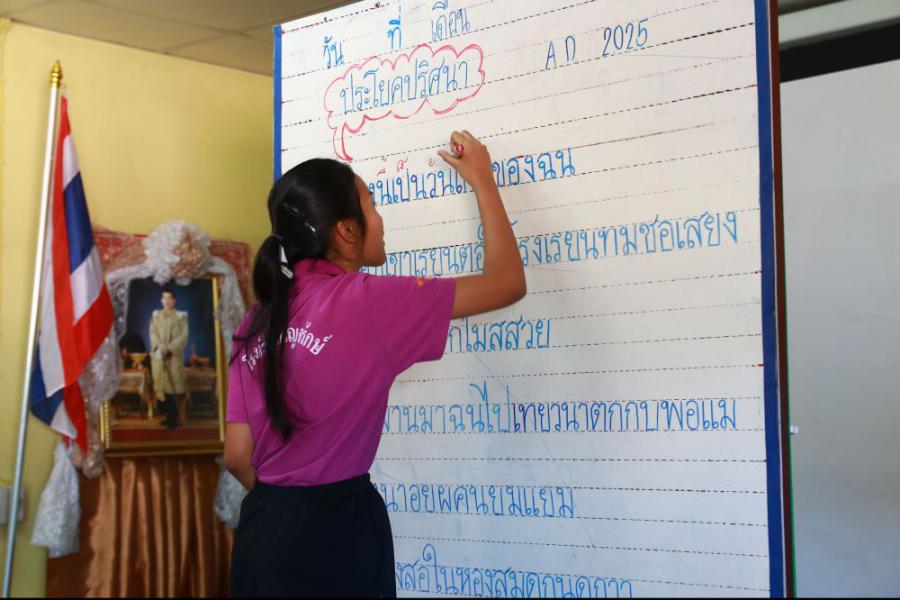 วัน ที่ เดือน AD 2025
ประโยคปริศนา
นี้เป็นวัน ของฉน
เขาเรยนต รงเรยนทมชอเสยง
กไมสสวย
านมาฉนไปเทยวนาตกกบพอแม
นาอยผคนยมแยม
งสอในหองสมด